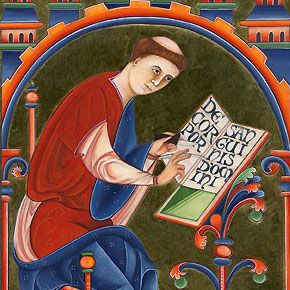 DE SAN
COR GUI
POR NIS
DOM
INI